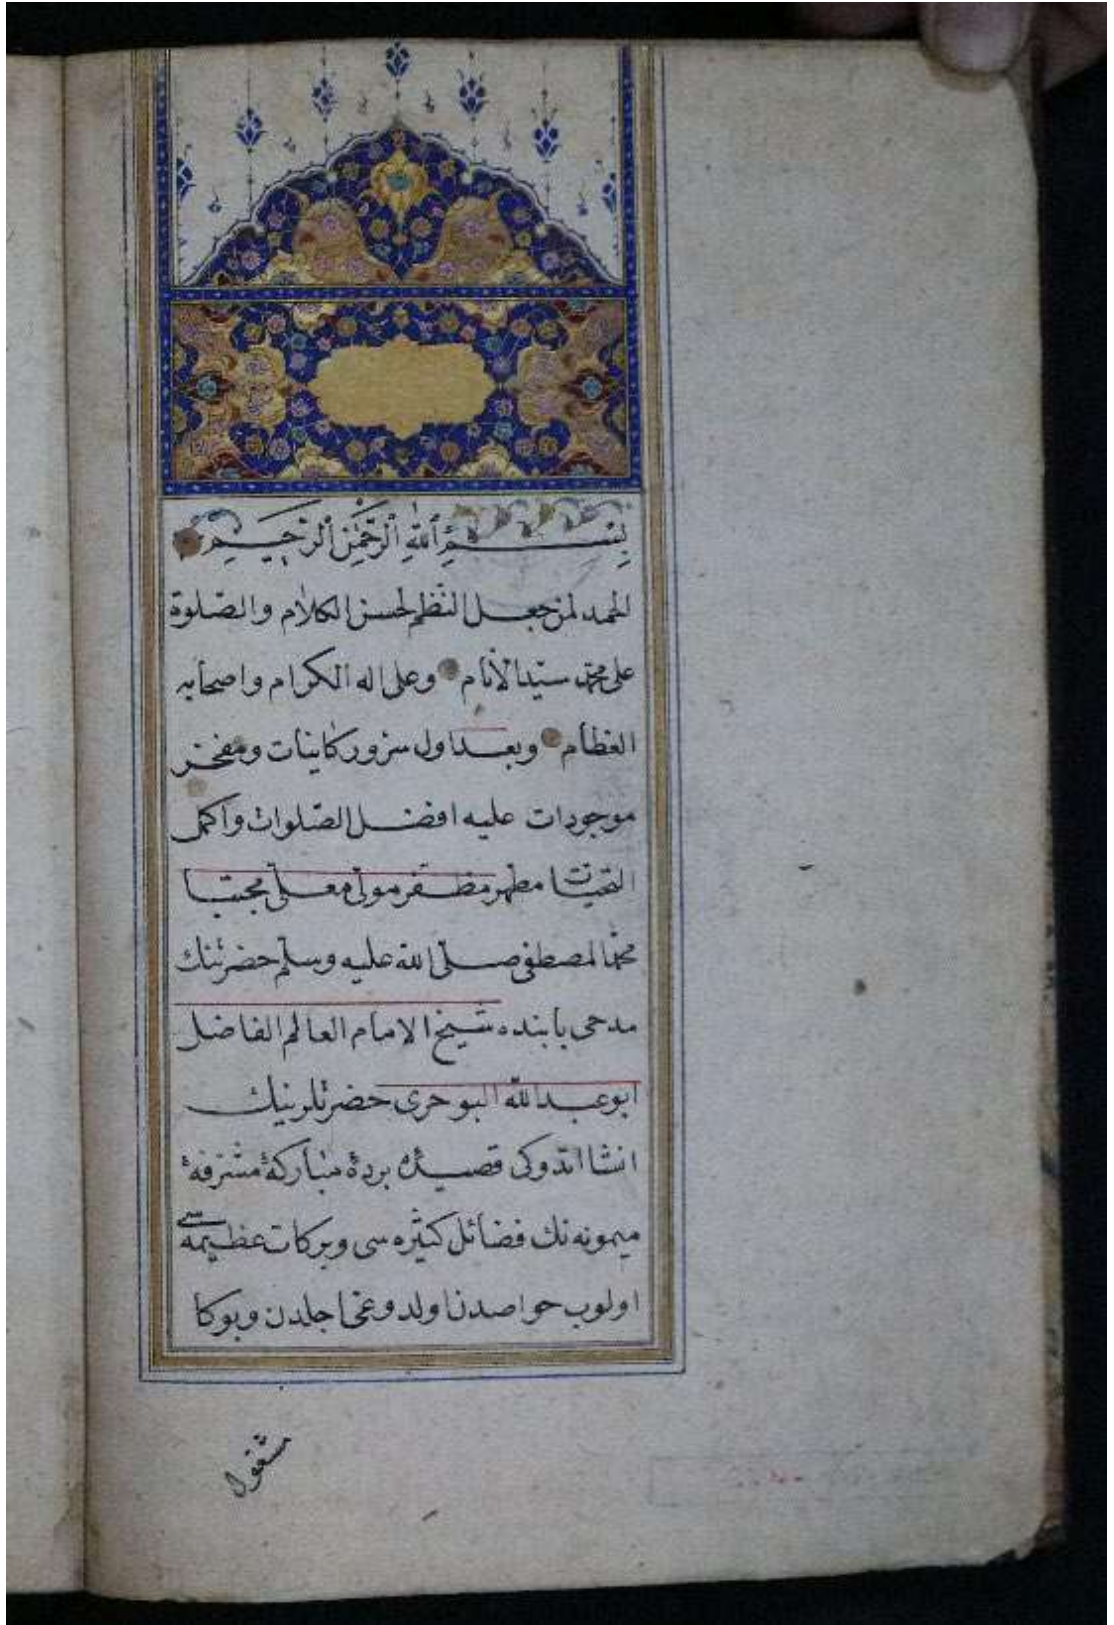 بِسْمِ ٱللّٰهِ ٱلرَّحْمٰنِ ٱلرَّحِيمِ
الحمد لمن جعل النظم لحسن الكلام والصّلوة
على محمّد سيّد الأنام وعلى اله الكرام واصحابه
العظام وبعد اول سرور كاينات ومفخر
موجودات عليه افضل الصّلوات واكمل
التحيّات مطهر مظفر مولى معلّى مجتبا
محمّد المصطفى صلّى الله عليه وسلّم حضرتنك
مدحى يابنده شيخ الامام العالم الفاضل
ابو عبد الله البوحرى حضرتلرينك
انشا اتدوكى قصيدهٔ بردهٔ مباركهٔ مشرفهٔ
ميمونه نك فضائل كثيره سى وبركات عظيمه سى
اولوب حواصدن اولدوغى اجلدن وبوكا
مشغول